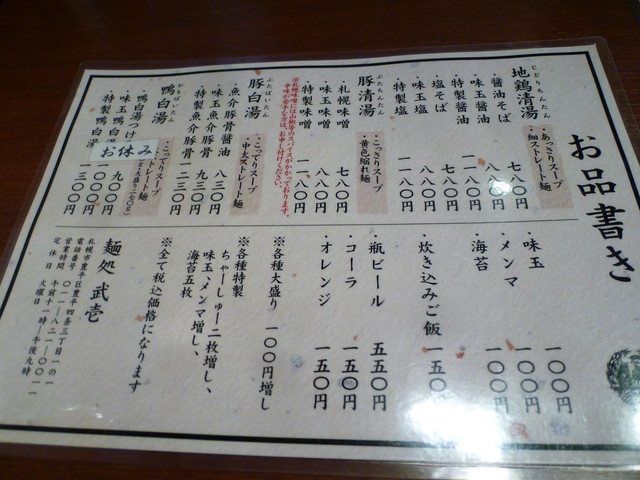 お品書き
じどりちんたん
地鶏清湯
・あっさりスープ
・細ストレート麺
・醤油そば 七八〇円
・味玉醤油 八八〇円
・特製醤油 一一八〇円
・塩そば 七八〇円
・味玉塩 八八〇円
・特製塩 一一八〇円
ぶたちんたん
豚清湯
・こっさりスープ
・黄色縮れ麺
・札幌味噌 七八〇円
・味玉味噌 八八〇円
・特製味噌 一一八〇円
※札幌味噌には山椒等のスパイスがかかっております。
辛味が苦手な方は、お申し付けください。
ぶたぱいたん
豚白湯
・こってりスープ
・中太ストレート麺
・魚介豚骨醤油 八三〇円
・味玉魚介豚骨 九三〇円
・特製魚介豚骨 一二三〇円
かもぱいたん
鴨白湯
・こってりスープ
ストレート麺
鴨白湯つけ 九〇〇円
味玉鴨白 一〇〇〇円
特製鴨白湯 一三〇〇円
お休み
・味玉 一〇〇円
・メンマ 一〇〇円
・海苔 一〇〇円
・炊き込みご飯 一五〇円
・瓶ビール 五五〇円
・コーラ 一五〇円
・オレンジ 一五〇円
※各種大盛り 一〇〇円増し
※各種特製
ちゃーしゅー二枚増し、
味玉、メンマ増し、
海苔五枚
※全て税込価格になります
麺処 武壱
札幌市豊平区豊平四条三丁目一の一
電話番号 〇一一―八二一―五〇一一
営業時間 午前十一時―午後九時
定休日 火曜日